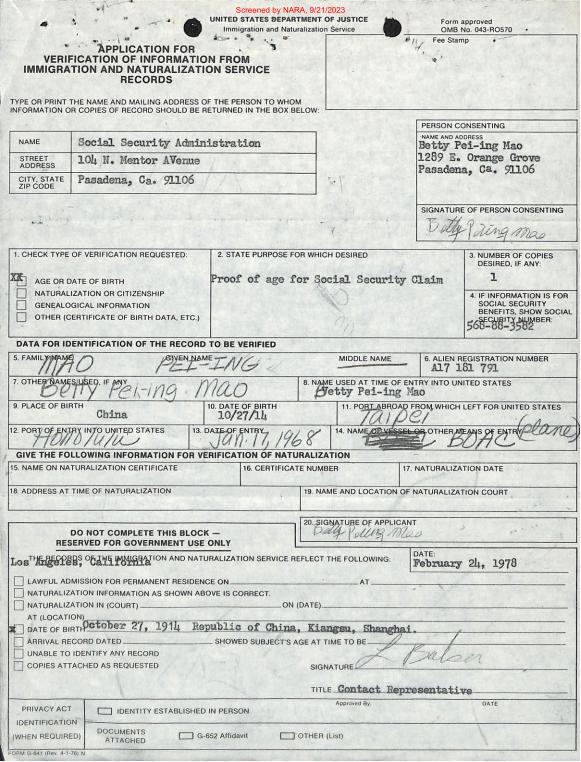 Screened by NARA, 9/21/2023
UNITED STATES DEPARTMENT OF JUSTICE
Immigration and Naturalization Service
Form approved
OMB No. 043-RO570
Fee Stamp
APPLICATION FOR
VERIFICATION OF INFORMATION FROM
IMMIGRATION AND NATURALIZATION SERVICE
RECORDS
TYPE OR PRINT THE NAME AND MAILING ADDRESS OF THE PERSON TO WHOM
INFORMATION OR COPIES OF RECORD SHOULD BE RETURNED IN THE BOX BELOW:
NAME Social Security Administration
STREET ADDRESS 104 N. Mentor AVenue
CITY, STATE ZIP CODE Pasadena, Ca. 91106
PERSON CONSENTING
NAME AND ADDRESS
Betty Pei-ing Mao
1289 E. Orange Grove
Pasadena, Ca. 91106
SIGNATURE OF PERSON CONSENTING
Betty Peiing Mao
1. CHECK TYPE OF VERIFICATION REQUESTED:
XX AGE OR DATE OF BIRTH
NATURALIZATION OR CITIZENSHIP
GENEALOGICAL INFORMATION
OTHER (CERTIFICATE OF BIRTH DATA, ETC.)
2. STATE PURPOSE FOR WHICH DESIRED
Proof of age for Social Security Claim
3. NUMBER OF COPIES DESIRED, IF ANY:
1
4. IF INFORMATION IS FOR SOCIAL SECURITY BENEFITS, SHOW SOCIAL SECURITY NUMBER:
568-88-3582
DATA FOR IDENTIFICATION OF THE RECORD TO BE VERIFIED
5. FAMILY NAME GIVEN NAME MIDDLE NAME
MAO PEI-ING
6. ALIEN REGISTRATION NUMBER
A17 181 791
7. OTHER NAMES USED, IF ANY
Betty Pei-ing Mao
8. NAME USED AT TIME OF ENTRY INTO UNITED STATES
Betty Pei-ing Mao
9. PLACE OF BIRTH
China
10. DATE OF BIRTH
10/27/14
11. PORT ABROAD FROM WHICH LEFT FOR UNITED STATES
Taipei
12. PORT OF ENTRY INTO UNITED STATES
Honolulu
13. DATE OF ENTRY
Jan. 17, 1968
14. NAME OF VESSEL OR OTHER MEANS OF ENTRY
BOAC (plane)
GIVE THE FOLLOWING INFORMATION FOR VERIFICATION OF NATURALIZATION
15. NAME ON NATURALIZATION CERTIFICATE
16. CERTIFICATE NUMBER
17. NATURALIZATION DATE
18. ADDRESS AT TIME OF NATURALIZATION
19. NAME AND LOCATION OF NATURALIZATION COURT
DO NOT COMPLETE THIS BLOCK —
RESERVED FOR GOVERNMENT USE ONLY
20. SIGNATURE OF APPLICANT
Betty Peiing Mao
THE RECORDS OF THE IMMIGRATION AND NATURALIZATION SERVICE REFLECT THE FOLLOWING:
Los Angeles, California
DATE:
February 24, 1978
LAWFUL ADMISSION FOR PERMANENT RESIDENCE ON AT
NATURALIZATION INFORMATION AS SHOWN ABOVE IS CORRECT.
NATURALIZATION IN (COURT) ON (DATE)
AT (LOCATION)
x DATE OF BIRTH October 27, 1914 Republic of China, Kiangsu, Shanghai.
ARRIVAL RECORD DATED SHOWED SUBJECT'S AGE AT TIME TO BE
UNABLE TO IDENTIFY ANY RECORD
COPIES ATTACHED AS REQUESTED
SIGNATURE
TITLE Contact Representative
Approved By DATE
PRIVACY ACT
IDENTIFICATION
(WHEN REQUIRED)
IDENTITY ESTABLISHED IN PERSON
DOCUMENTS ATTACHED
G-652 Affidavit
OTHER (List)
FORM G-641 (Rev. 4-1-76) N